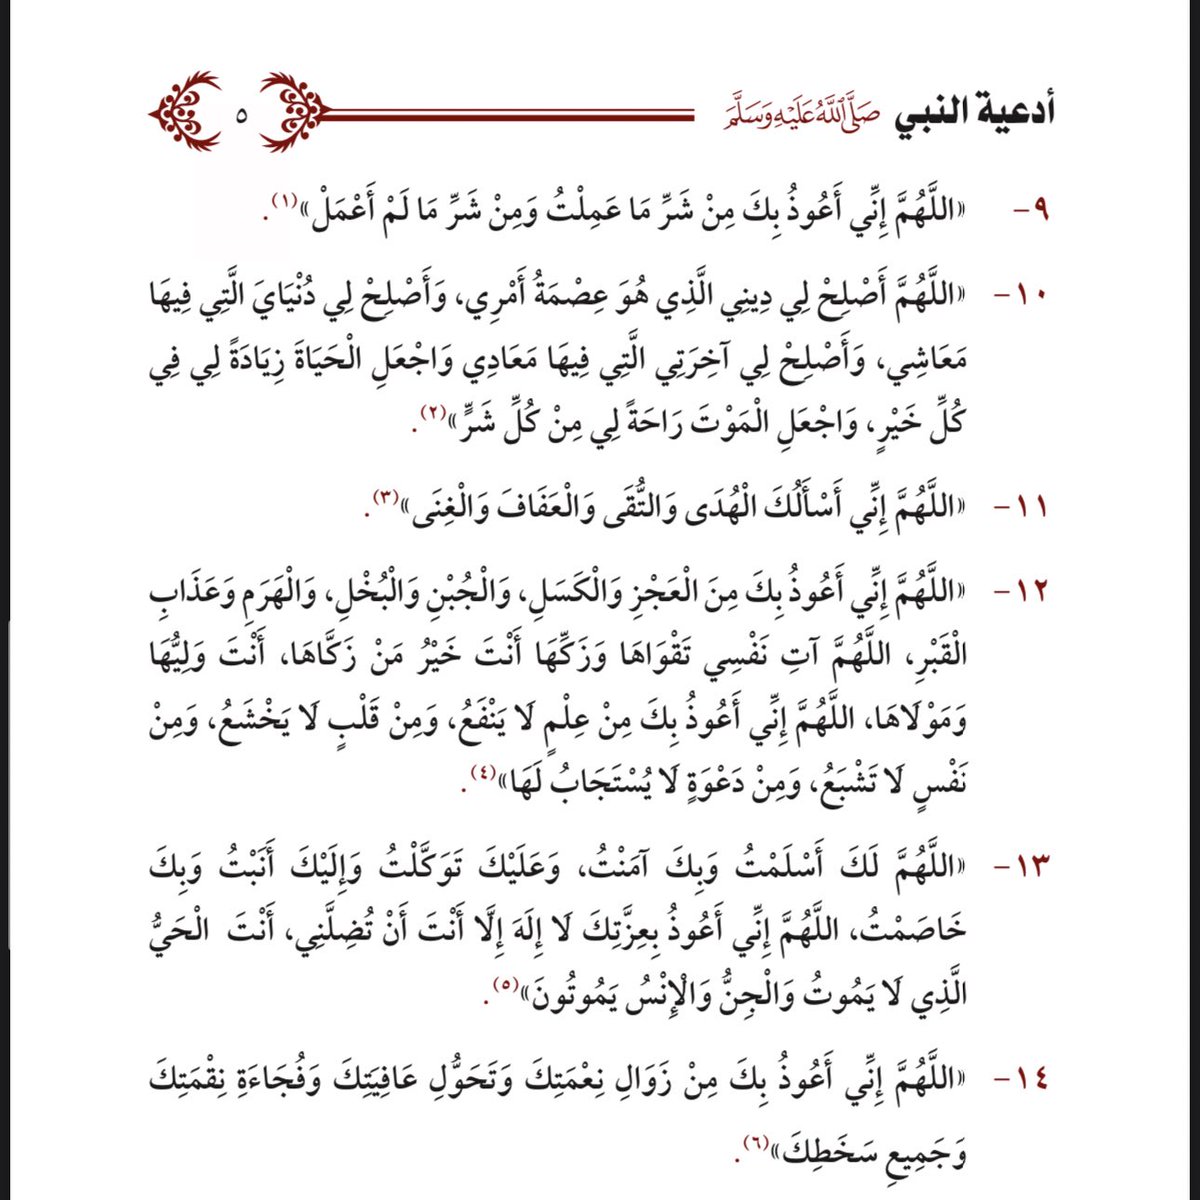 أدعية النبي صَلَّى ٱللَّهُ عَلَيْهِ وَسَلَّمَ ٥
٩- «اللَّهُمَّ إِنِّي أَعُوذُ بِكَ مِنْ شَرِّ مَا عَمِلْتُ وَمِنْ شَرِّ مَا لَمْ أَعْمَلْ»(١).
١٠- «اللَّهُمَّ أَصْلِحْ لِي دِينِي الَّذِي هُوَ عِصْمَةُ أَمْرِي، وَأَصْلِحْ لِي دُنْيَايَ الَّتِي فِيهَا
مَعَاشِي، وَأَصْلِحْ لِي آخِرَتِي الَّتِي فِيهَا مَعَادِي وَاجْعَلِ الْحَيَاةَ زِيَادَةً لِي فِي
كُلِّ خَيْرٍ، وَاجْعَلِ الْمَوْتَ رَاحَةً لِي مِنْ كُلِّ شَرٍّ»(٢).
١١- «اللَّهُمَّ إِنِّي أَسْأَلُكَ الْهُدَى وَالتُّقَى وَالْعَفَافَ وَالْغِنَى»(٣).
١٢- «اللَّهُمَّ إِنِّي أَعُوذُ بِكَ مِنَ الْعَجْزِ وَالْكَسَلِ، وَالْجُبْنِ وَالْبُخْلِ، وَالْهَرَمِ وَعَذَابِ
الْقَبْرِ، اللَّهُمَّ آتِ نَفْسِي تَقْوَاهَا وَزَكِّهَا أَنْتَ خَيْرُ مَنْ زَكَّاهَا، أَنْتَ وَلِيُّهَا
وَمَوْلَاهَا، اللَّهُمَّ إِنِّي أَعُوذُ بِكَ مِنْ عِلْمٍ لَا يَنْفَعُ، وَمِنْ قَلْبٍ لَا يَخْشَعُ، وَمِنْ
نَفْسٍ لَا تَشْبَعُ، وَمِنْ دَعْوَةٍ لَا يُسْتَجَابُ لَهَا»(٤).
١٣- «اللَّهُمَّ لَكَ أَسْلَمْتُ وَبِكَ آمَنْتُ، وَعَلَيْكَ تَوَكَّلْتُ وَإِلَيْكَ أَنَبْتُ وَبِكَ
خَاصَمْتُ، اللَّهُمَّ إِنِّي أَعُوذُ بِعِزَّتِكَ لَا إِلَهَ إِلَّا أَنْتَ أَنْ تُضِلَّنِي، أَنْتَ الْحَيُّ
الَّذِي لَا يَمُوتُ وَالْجِنُّ وَالْإِنْسُ يَمُوتُونَ»(٥).
١٤- «اللَّهُمَّ إِنِّي أَعُوذُ بِكَ مِنْ زَوَالِ نِعْمَتِكَ وَتَحَوُّلِ عَافِيَتِكَ وَفُجَاءَةِ نِقْمَتِكَ
وَجَمِيعِ سَخَطِكَ»(٦).